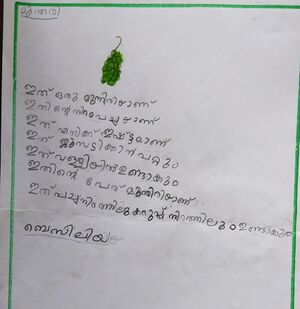 മുന്തരി
ഇത് ഒരു മുന്തിരിയാണ്
ഇതിന്റെ നിറം പച്ചയാണ്
ഇത് എനിക്ക് ഇഷ്ട്ടമാണ്
ഇത് ജൂസടിക്കാൻ പറ്റും
ഇത് വള്ളിയിൽ ഉണ്ടാകും
ഇതിന്റെ പേര് മുന്തിരിയാണ്
ഇത് പച്ചനിറത്തിലും കറുപ്പ് നിറത്തിലും ഉണ്ടാകും
ബെസിലിയ